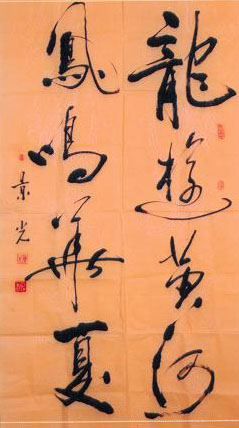 龍遊黄河
鳳鳴華夏
景光